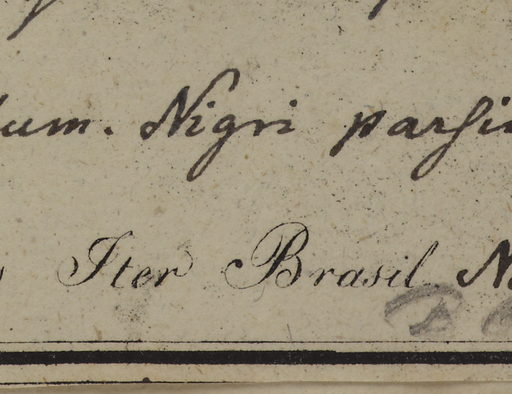 um. Nigri parsi
Iter Brasil N